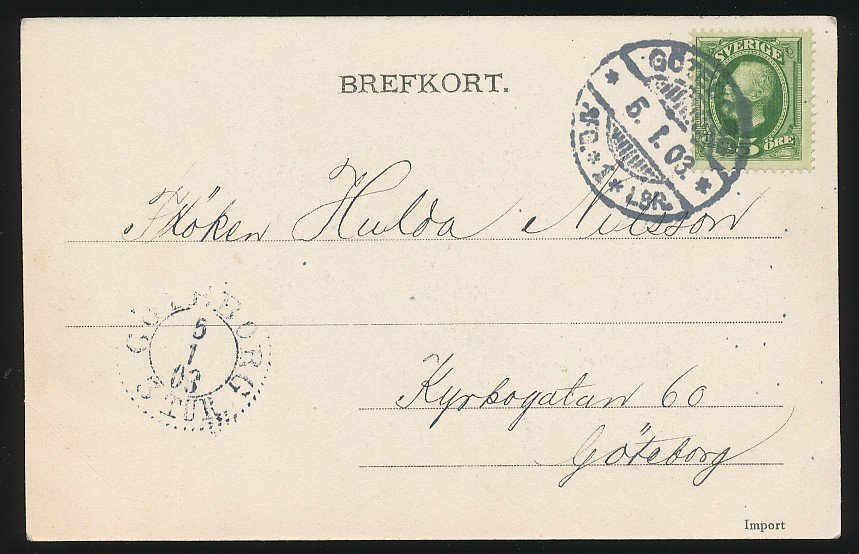 BREFKORT.
SVERIGE
5 ÖRE
GÖTEBORG
5. 1. 03.
* 1 * LBR. *
Fröken Hulda Nilsson
GÖTEBORG
5
1
03
3 TUR
Kyrkogatan 60
Göteborg
Import